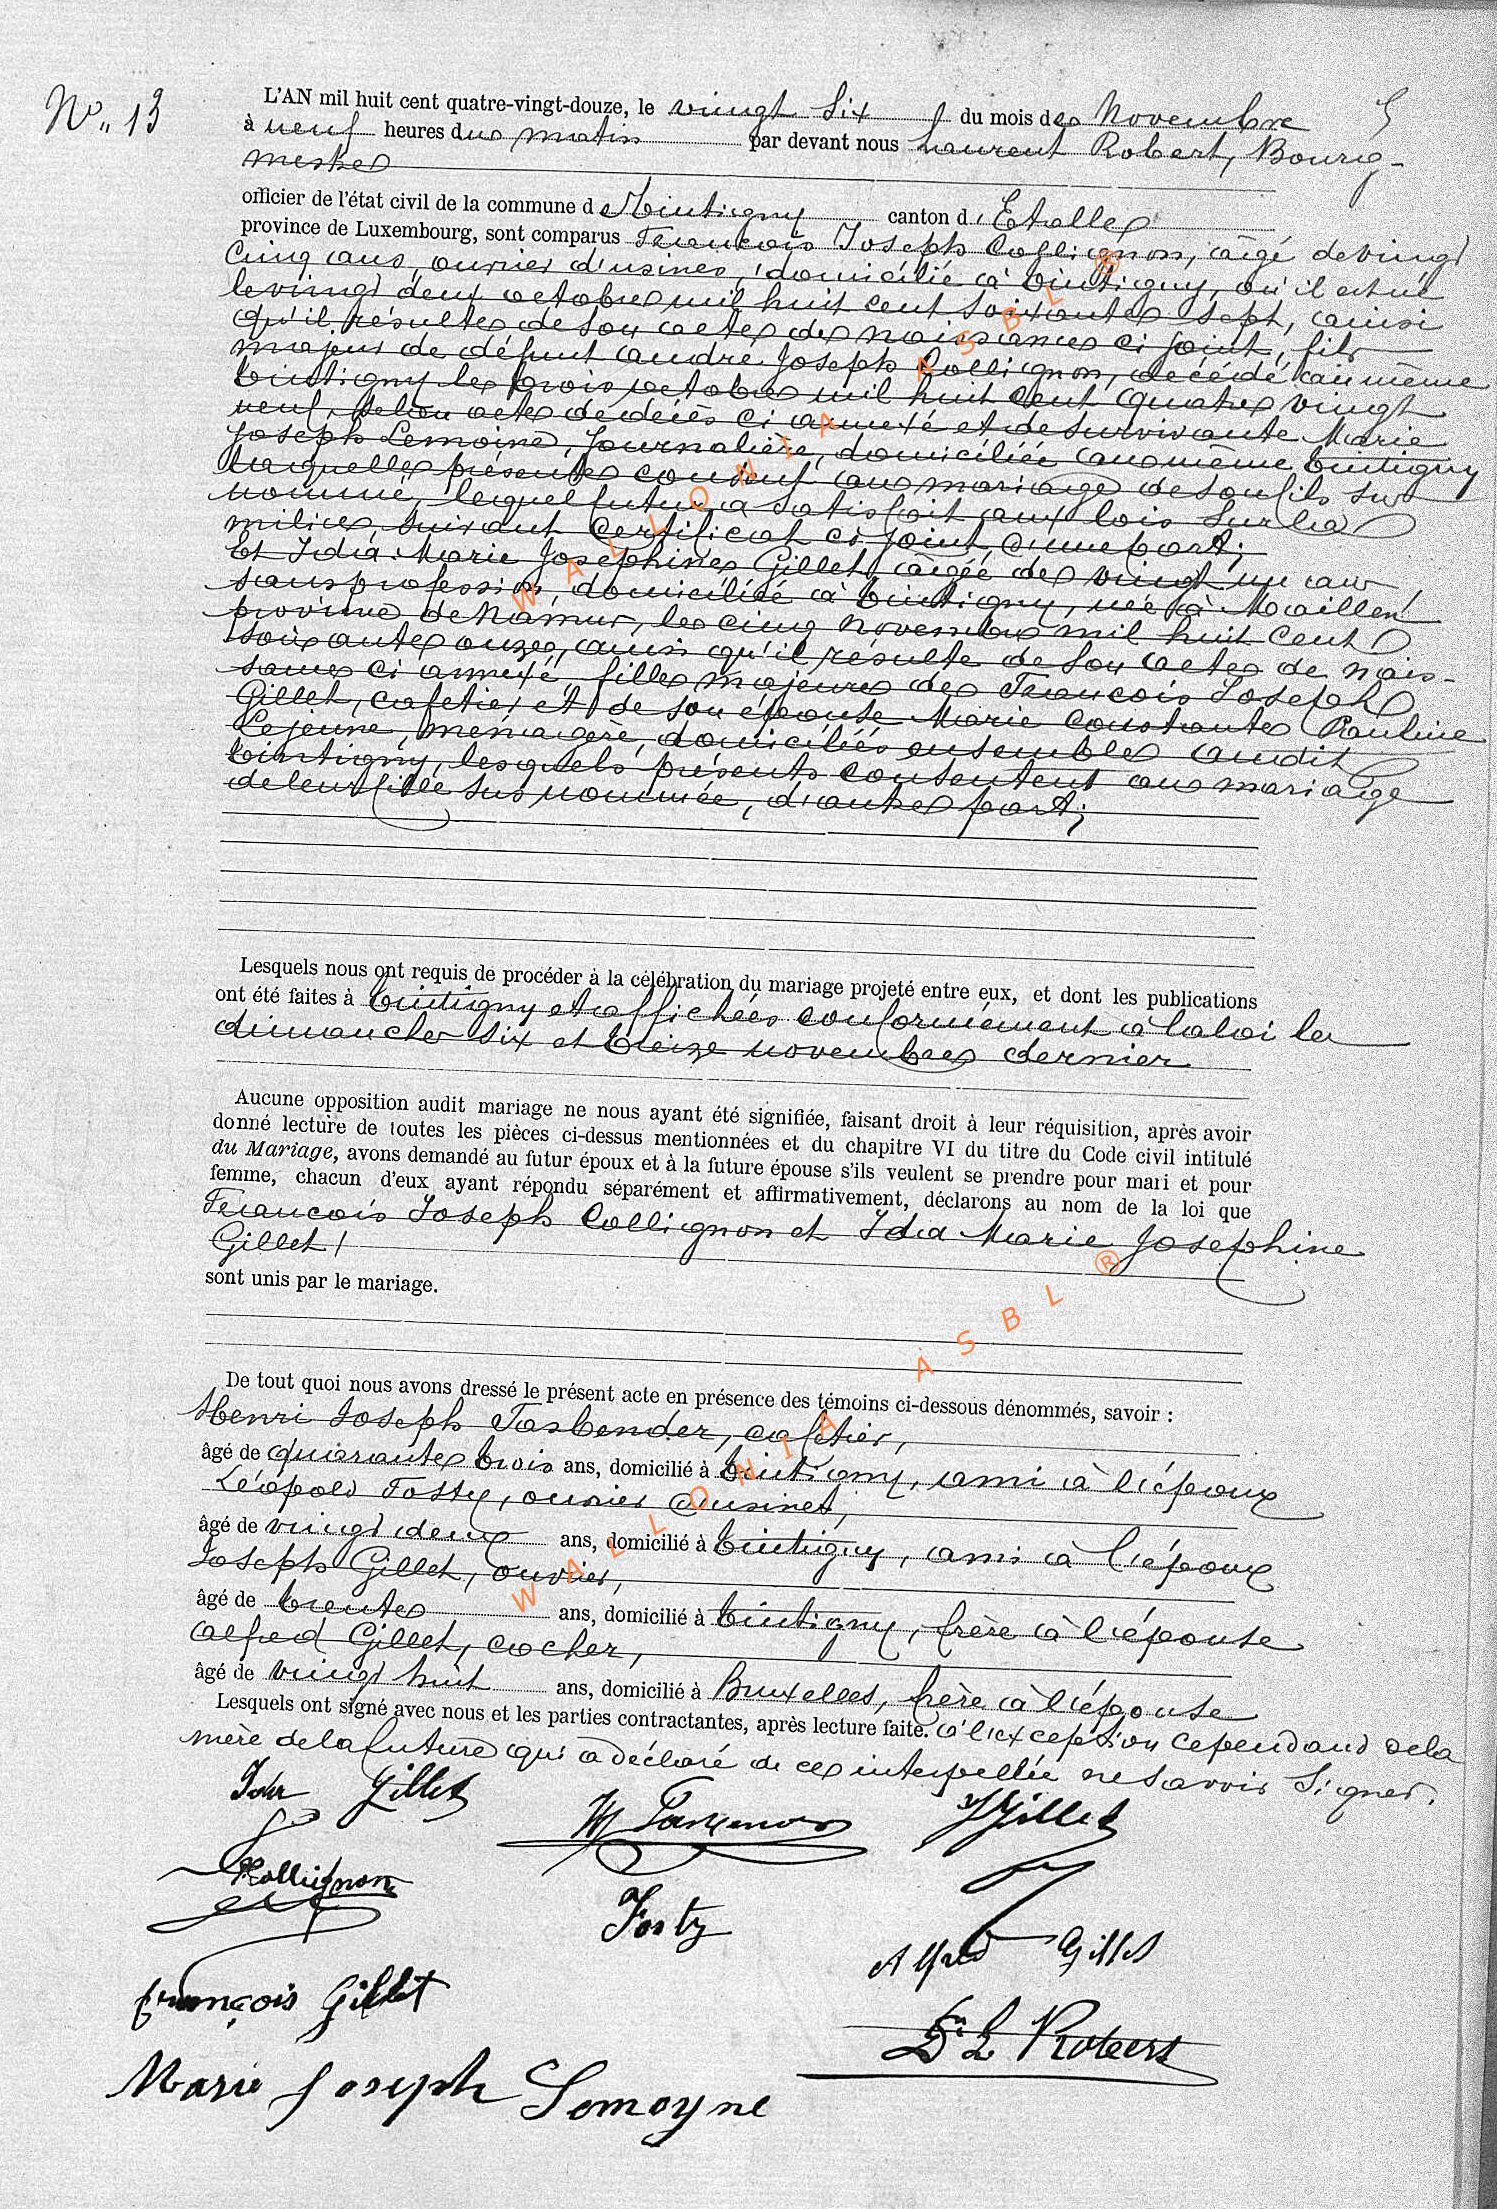 N° 13
L'AN mil huit cent quatre-vingt-douze, le vingt six du mois de Novembre
à neuf heures du matin par devant nous Laurent Robert, Bourg-
mestre
officier de l'état civil de la commune de Tintigny canton d'Etalle
province de Luxembourg, sont comparus François Joseph Collignon, âgé de vingt
cinq ans, ouvrier d'usines, domicilié à Tintigny, où il est né
le vingt deux octobre mil huit cent soixante sept, ainsi
qu'il résulte de son acte de naissance ci joint, fils
majeur de défunt André Joseph Collignon, décédé au même
Tintigny le trois octobre mil huit cent quatre vingt
neuf, selon acte de décès ci annexé et de survivante Marie
Joseph Lemoine, Journalière, domiciliée au même Tintigny
laquelle présente consent au mariage de son fils sus
nommé, lequel futur a satisfait aux lois sur la
milice, suivant certificat ci joint, d'une part;
Et Ida Marie Josephine Gillet, âgée de vingt un ans,
sans profession, domiciliée à Tintigny, née à Maillen
province de Namur, le cinq novembre mil huit cent
soixante onze, ainsi qu'il résulte de son acte de nais-
sance ci annexé, fille majeure de François Joseph
Gillet, cafetier et de son épouse Marie Constante Pauline
Lejeune, ménagère, domiciliés ensemble audit
Tintigny, lesquels présents consentent au mariage
de leur fille sus nommée, d'autre part;
Lesquels nous ont requis de procéder à la célébration du mariage projeté entre eux, et dont les publications
ont été faites à Tintigny et affichées conformément à la loi les
dimanches six et treize novembre dernier
Aucune opposition audit mariage ne nous ayant été signifiée, faisant droit à leur réquisition, après avoir
donné lecture de toutes les pièces ci-dessus mentionnées et du chapitre VI du titre du Code civil intitulé
du Mariage, avons demandé au futur époux et à la future épouse s'ils veulent se prendre pour mari et pour
femme, chacun d'eux ayant répondu séparément et affirmativement, déclarons au nom de la loi que
François Joseph Collignon et Ida Marie Josephine
Gillet
sont unis par le mariage.
De tout quoi nous avons dressé le présent acte en présence des témoins ci-dessous dénommés, savoir :
Henri Joseph Fasbender, cafetier,
âgé de quarante trois ans, domicilié à Tintigny, ami à l'époux
Léopold Fosty, ouvrier d'usines,
âgé de vingt deux ans, domicilié à Tintigny, ami à l'époux
Joseph Gillet, ouvrier,
âgé de trente ans, domicilié à Tintigny, frère à l'épouse
Alfred Gillet, cocher,
âgé de vingt huit ans, domicilié à Bruxelles, frère à l'épouse
Lesquels ont signé avec nous et les parties contractantes, après lecture faite. à l'exception cependant de la
mère de la future qui a déclaré de ce interpellée ne savoir signer.
Ida Gillet
J Gillet
Collignon
Fosty
Alfred Gillet
François Gillet
L Robert
Marie Joseph Lemoyne
WALLONIA ASBL ®
WALLONIA ASBL ®